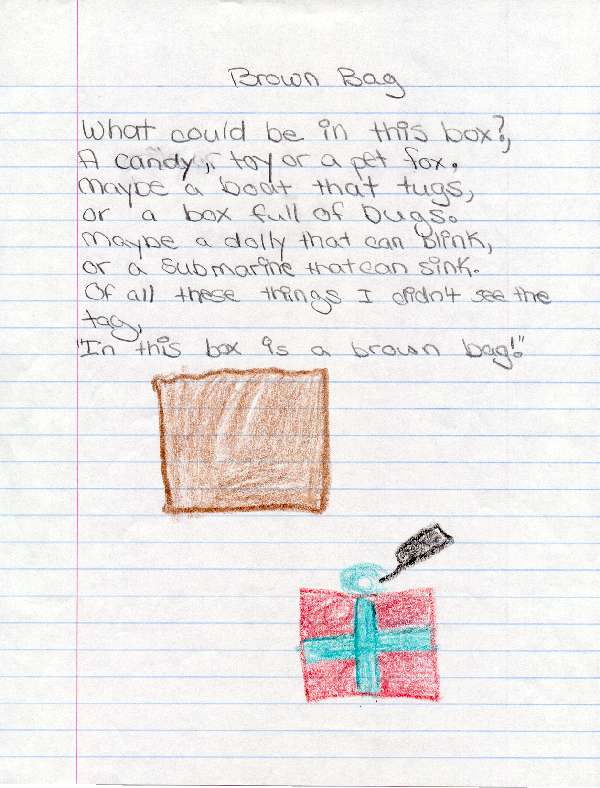 Brown Bag
What could be in this box?,
A candy, toy or a pet fox.
Maybe a boat that tugs,
or a box full of bugs.
Maybe a dolly that can blink,
or a submarine that can sink.
Of all these things I didn't see the
tag,
"In this box is a brown bag!"